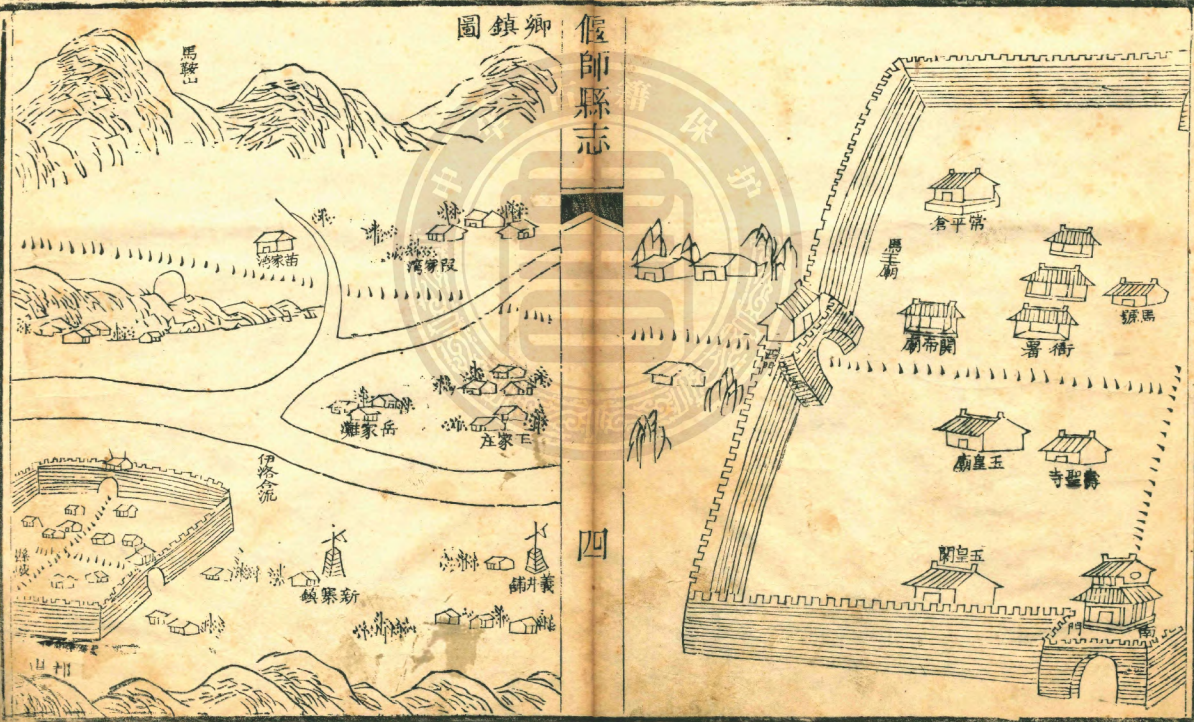 偃師縣志
四
常平倉
馬王廟
馬號
衙署
關帝廟
西門
玉皇廟
壽聖寺
玉皇閣
南門
鄉鎮圖
馬鞍山
苗家灣
段家灣
岳家灘
王家庄
伊洛合流
義井鋪
新寨鎮
中
保护